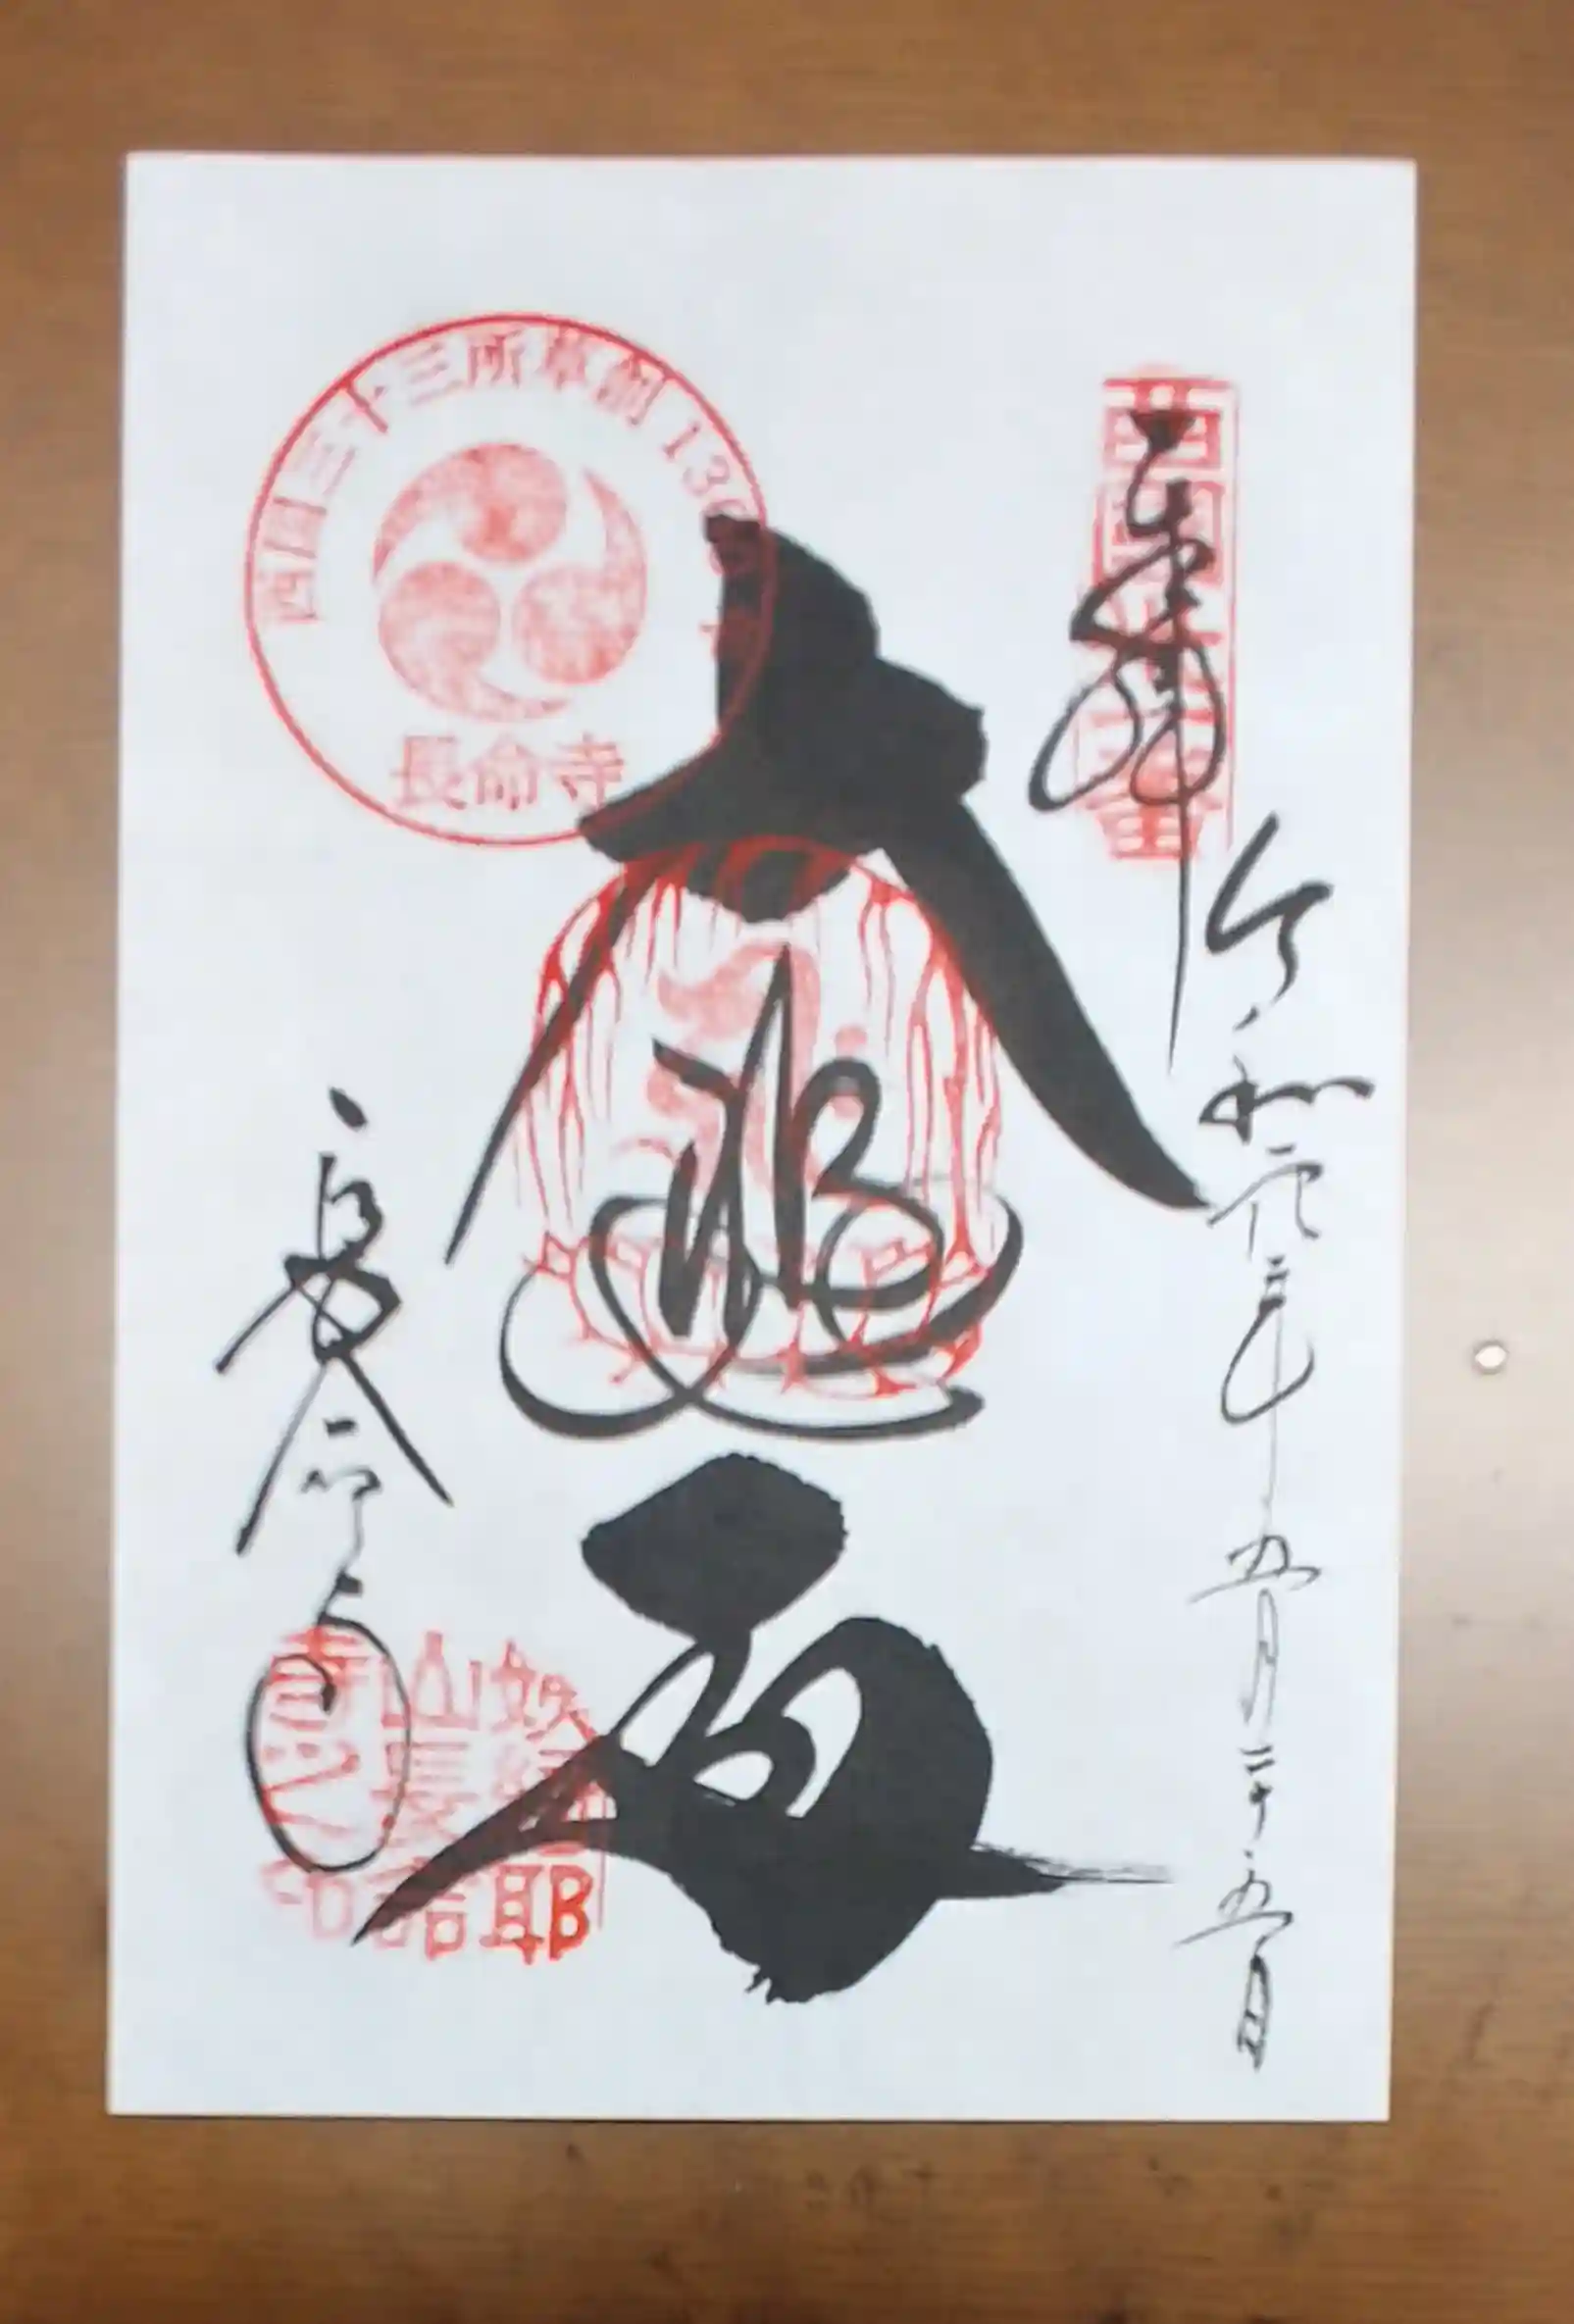 奉拝
西国卅一番
令和元年五月二十五日
大悲殿
西国三十三所草創1300年
長命寺
長命寺
姨綺耶山長命寺之印